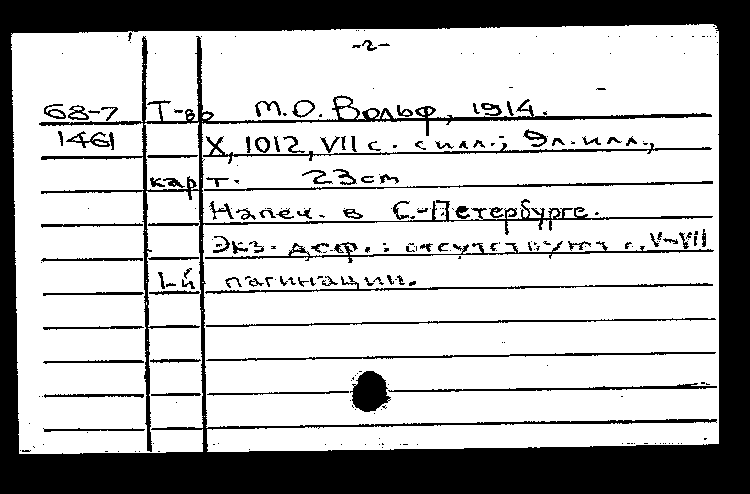 -2-
68-7 Т-во М.О. Вольф, 1914.
1461 X, 1012, VII с. с илл.; 9 л. илл.,
карт. 23cm
Напеч. в С.-Петербурге.
Экз. деф.: отсутствуют с. V-VII
1-й пагинации.